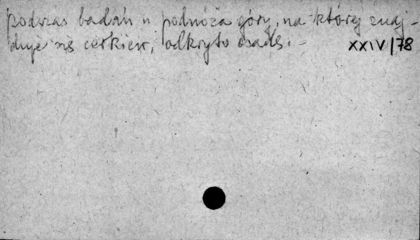 podczas badań u podnóża góry, na której znaj-
duje się cerkiew, odkryto osadę. –
XXIV/78